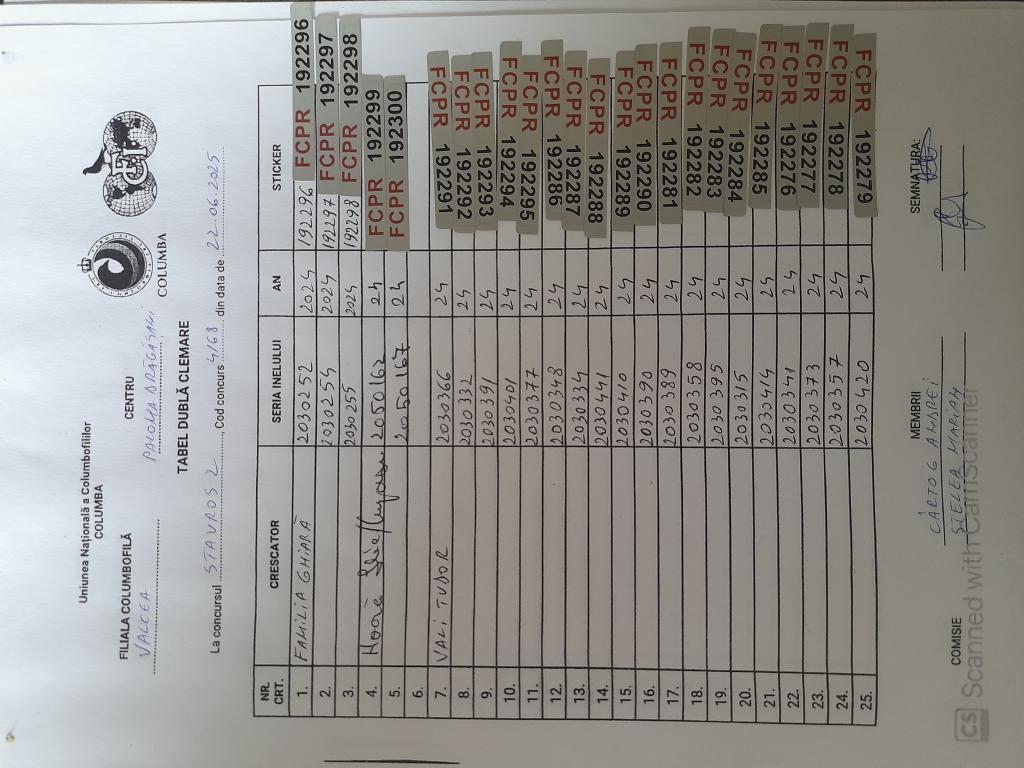 Uniunea Națională a Columbofililor
COLUMBA
COLUMBA
FCI
FILIALA COLUMBOFILĂ CENTRU
VALCEA PALOMA DRĂGĂȘANI
TABEL DUBLĂ CLEMARE
La concursul STAVROS 2, Cod concurs 4/68 din data de 22.06.2025
NR. CRT. CRESCATOR SERIA INELULUI AN STICKER
1. FAMILIA GHIARĂ 2030252 2024 192296 FCPR 192296
2. 2030254 2024 192297 FCPR 192297
3. 2030255 2024 192298 FCPR 192298
4. 2050162 24 FCPR 192299
5. 2050167 24 FCPR 192300
6.
7. VALI TUDOR 2030366 24 FCPR 192291
8. 2030332 24 FCPR 192292
9. 2030391 24 FCPR 192293
10. 2030401 24 FCPR 192294
11. 2030377 24 FCPR 192295
12. 2030348 24 FCPR 192286
13. 2030334 24 FCPR 192287
14. 2030441 24 FCPR 192288
15. 2030410 24 FCPR 192289
16. 2030390 24 FCPR 192290
17. 2030389 24 FCPR 192281
18. 2030358 24 FCPR 192282
19. 2030395 24 FCPR 192283
20. 2030315 24 FCPR 192284
21. 2030414 24 FCPR 192285
22. 2030341 24 FCPR 192276
23. 2030373 24 FCPR 192277
24. 2030357 24 FCPR 192278
25. 2030420 24 FCPR 192279
COMISIE MEMBRII SEMNATURA:
CÂRTOG ANDREI
STELEA MARIAN
CS Scanned with CamScanner